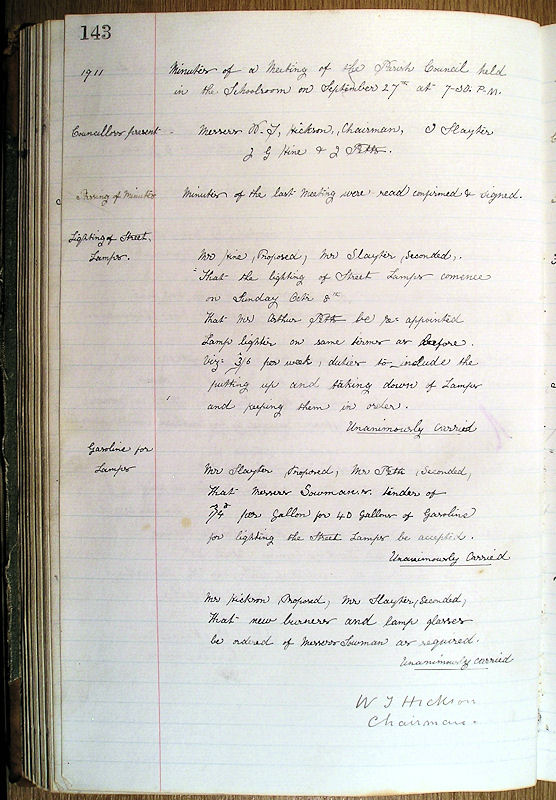 143
1911 Minutes of a Meeting of the Parish Council held
in the Schoolroom on September 27th at 7-30. P.M.
Councillors present - Messers W. T, Hickson, Chairman, J Slayter
J G Hine & J Petts.
Passing of Minutes Minutes of the last Meeting were read confirmed & signed.
Lighting of Street
Lamps. Mr Hine, Proposed, Mr Slayter, Seconded,.
That the lighting of Street Lamps comence
on Sunday Octr 8th
That Mr Arthur Petts be re-appointed
Lamp lighter on same terms as before.
Viz= 3/6 per week, duties to include the
putting up and taking down of Lamps
and keeping them in order.
Unanimously Carried
Gasoline for
Lamps Mr Slayter, Proposed, Mr Petts, Seconded,
That Messers tender of
per Gallon for 40 Gallons of Gasoline
for lighting the Street Lamps be accepted.
Unanimously Carried
Mr Hickson Proposed, Mr Slayter, Seconded,
That new burners and lamp glasses
be ordered of Messers Sowman as required.
Unanimously carried
W T Hickson
Chairman.